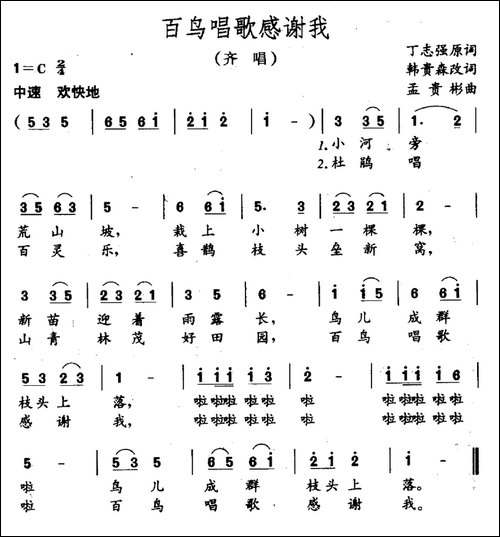 百鸟唱歌感谢我
(齐 唱)
丁志强原词
韩贵森改词
孟贵彬曲
1=C 2/4
中速 欢快地
( 5 3 5 | 6 5 6 1 | 2 1 2 | 1 - ) | 3 3 5 | 1. 2 |
1.小 河 旁
2.杜 鹃 唱
3 5 6 3 | 5 - | 6 6 1 | 5. 3 | 2 3 2 1 | 2 - |
荒 山 坡, 栽 上 小 树 一 棵 棵,
百 灵 乐, 喜 鹊 枝 头 垒 新 窝,
3 3 5 | 2 3 2 1 | 3 5 | 6 - | 1 1 5 | 6 5 6 |
新 苗 迎 着 雨 露 长, 鸟 儿 成 群
山 青 林 茂 好 田 园, 百 鸟 唱 歌
5 3 2 3 | 1 - | 1 1 1 1 3 | 2 - | 1 1 1 1 6 |
枝头 上 落, 啦 啦啦 啦啦 啦 啦啦 啦啦 啦
感 谢 我, 啦 啦啦 啦啦 啦 啦啦 啦啦 啦
5 - | 2 3 5 | 6 5 6 | 2 1 2 | 1 - ‖
啦 鸟 儿 成 群 枝头 上 落。
啦 百 鸟 唱 歌 感 谢 我。